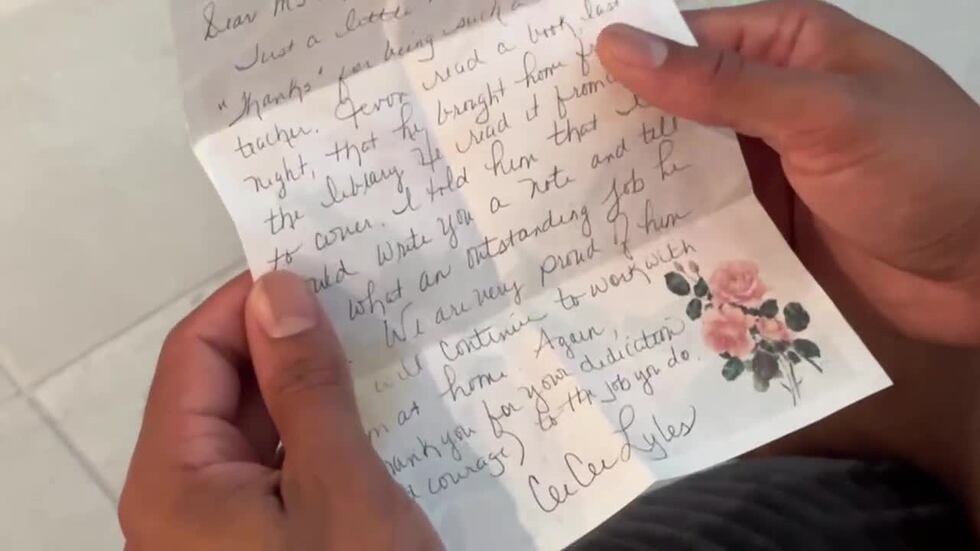 Dear Ms
Just a little
"Thanks" for being such a
teacher. Jevon read a book, last
night, that he brought home
the library. He read it from
to cover. I told him that I
write you a note and tell
what an outstanding job he
We are very proud of him
will continue to work with
at home. Again,
thank you for your dedication
courage) to the job you do.
CeeCee Lyles